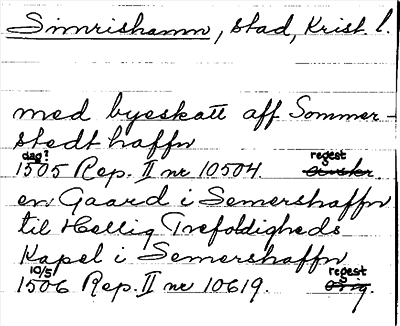 Simrishamn, stad, Krist. l.
med byeskatt aff Sommer-
stedthaffn
dag? regest
1505 Rep. II nr 10504. avskr.
en Gaard i Semershaffn
til Hellig Trefoldigheds
Kapel i Semershaffn
10/5 regest
1506 Rep. II nr 10619. orig.